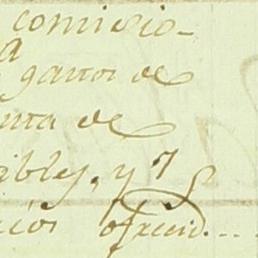 comisio-
a
gastos de
nta de
ibles, y
ofrecid...